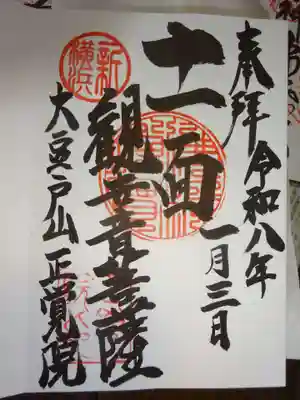 奉拝 令和八年
一月三日
十一面
観世音菩薩
大豆戸山 正覚院
新横浜